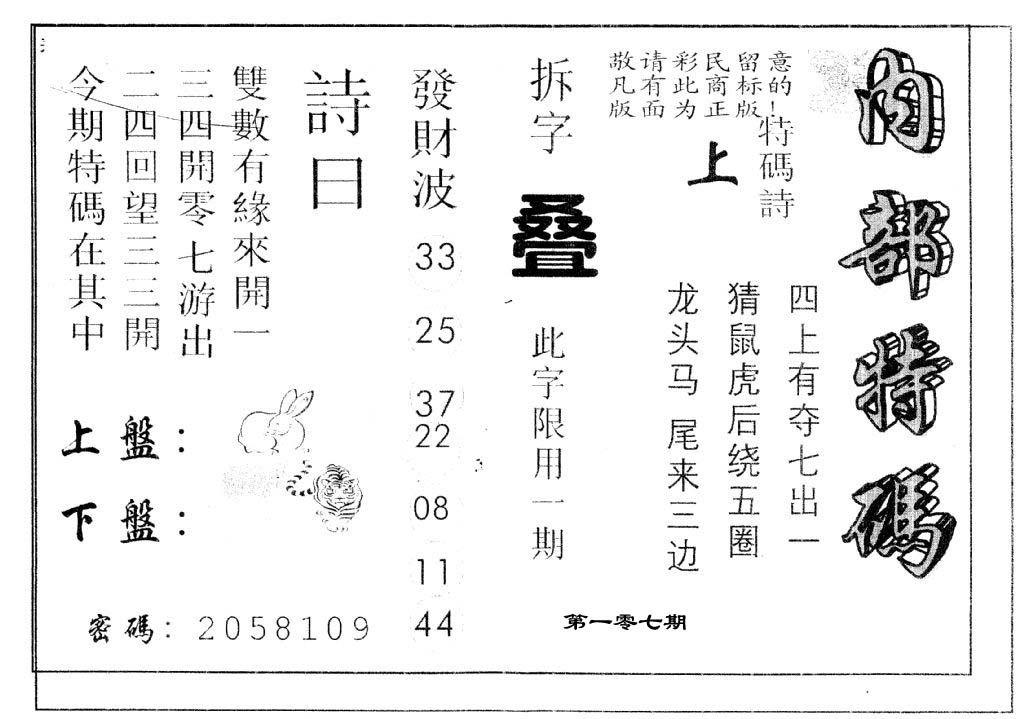 內部特碼
敬请彩民留意
凡有此商标的!
版面为正版
特碼詩
上
四上有夺七出一
猜鼠虎后绕五圈
龙头马 尾来三边
第一零七期
拆字
叠
此字限用一期
發財波
33
25
37
22
08
11
44
詩曰
雙數有緣來開一
三四開零七游出
二四回望三三開
今期特碼在其中
上盤：
下盤：
密碼：2058109